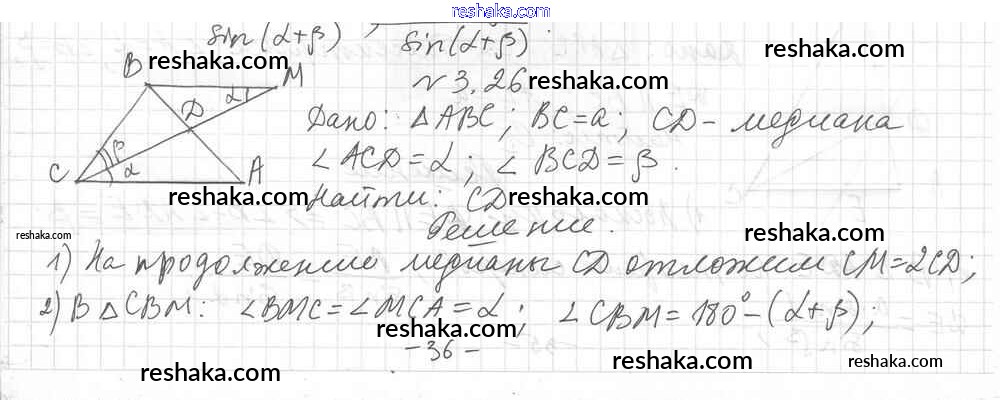 reshaka.com
sin(α+β) , sin(α+β) .
reshaka.com
№ 3.26 reshaka.com
B M
D α
Дано: △ ABC; BC=a; CD - медиана
β
C α A
∠ ACD=α; ∠ BCD=β.
reshaka.com reshaka.com
Найти: CD
Решение.
reshaka.com
1) На продолжение медианы CD отложим CM=2CD;
2) В △ CBM: ∠BMC=∠MCA=α; ∠CBM=180°-(α+β);
reshaka.com reshaka.com
-36-
reshaka.com reshaka.com